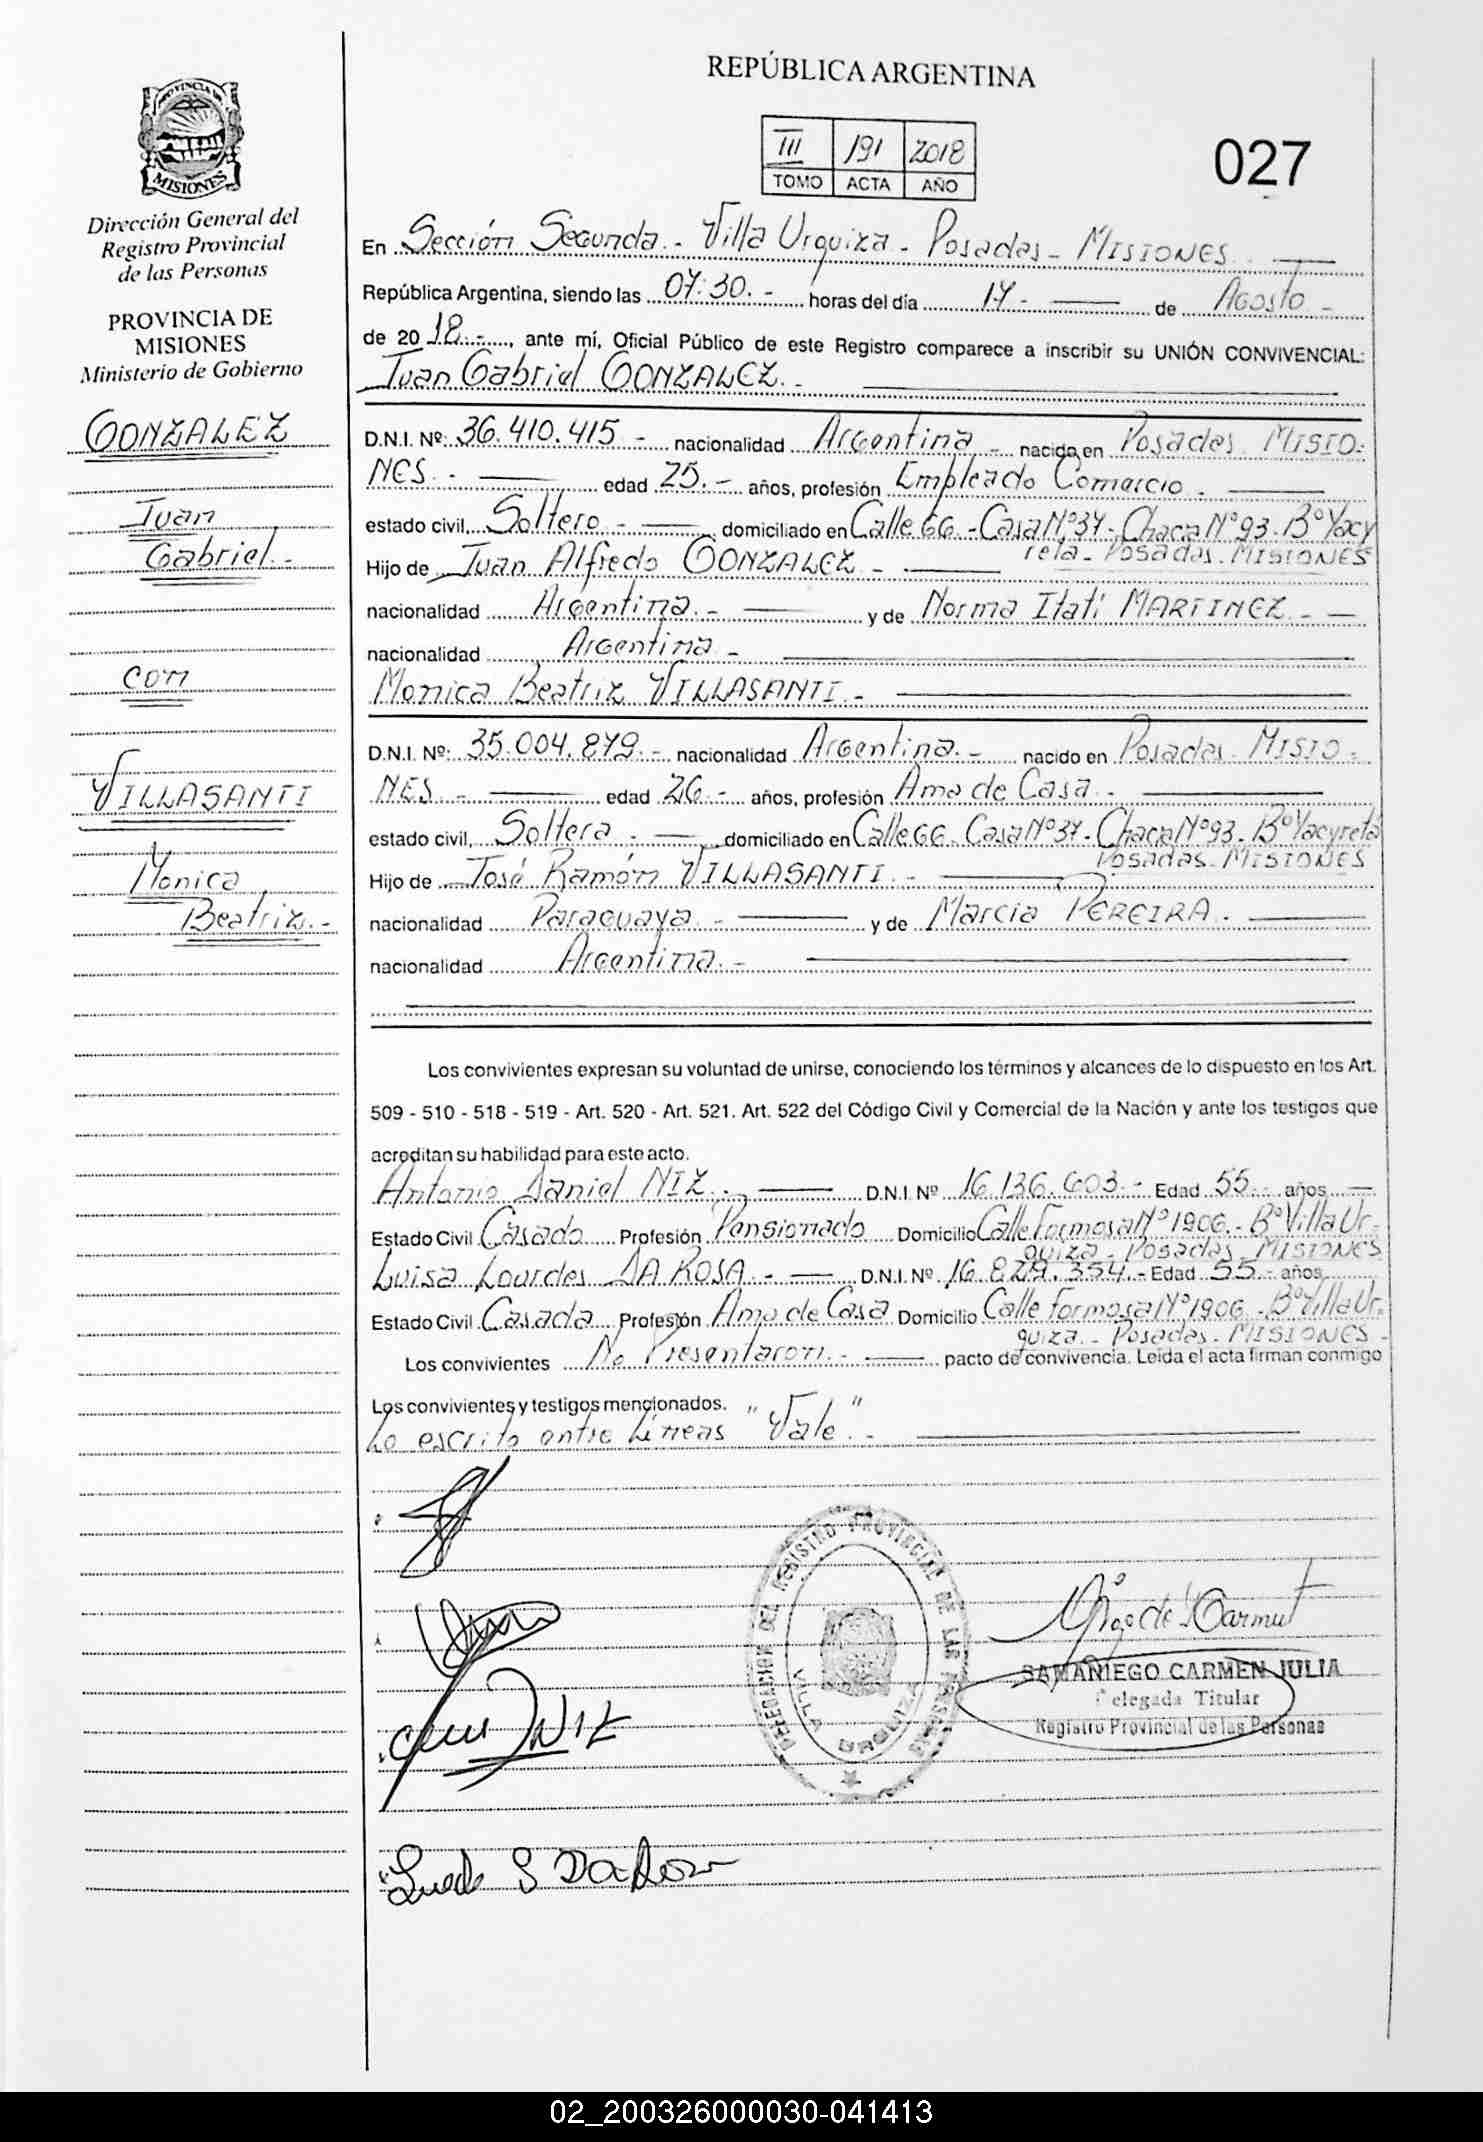 REPÚBLICA ARGENTINA
PROVINCIA DE
MISIONES
III 191 2018
TOMO ACTA AÑO
027
Dirección General del
Registro Provincial
de las Personas
PROVINCIA DE
MISIONES
Ministerio de Gobierno
GONZALEZ
Juan
Gabriel.-
con
VILLASANTI
Monica
Beatriz.-
En Sección Segunda.- Villa Urquiza - Posadas - MISIONES.
República Argentina, siendo las 07:30.- horas del día 14.- de Agosto -
de 20 18.-, ante mí, Oficial Público de este Registro comparece a inscribir su UNIÓN CONVIVENCIAL:
Juan Gabriel GONZALEZ.-
D.N.I. Nº: 36.410.415 - nacionalidad Argentina - nacido en Posadas. MISIO-
NES.- edad 25.- años, profesión Empleado Comercio.
estado civil, Soltero.- domiciliado en Calle 66 - Casa Nº 37 - Chacra Nº 93. Bº Yacy
retá - Posadas. MISIONES
Hijo de Juan Alfredo GONZALEZ -
nacionalidad Argentina.- y de Norma Itatí MARTINEZ.-
nacionalidad Argentina -
Monica Beatriz VILLASANTI.-
D.N.I. Nº: 35.004.879.- nacionalidad Argentina.- nacido en Posadas. MISIO-
NES.- edad 26.- años, profesión Ama de Casa.-
estado civil, Soltera.- domiciliado en Calle 66. Casa Nº 37 - Chacra Nº 93 - Bº Yacyretá
Posadas - MISIONES
Hijo de José Ramón VILLASANTI.-
nacionalidad Paraguaya.- y de Marcia PEREIRA.
nacionalidad Argentina.-
Los convivientes expresan su voluntad de unirse, conociendo los términos y alcances de lo dispuesto en los Art.
509 - 510 - 518 - 519 - Art. 520 - Art. 521. Art. 522 del Código Civil y Comercial de la Nación y ante los testigos que
acreditan su habilidad para este acto.
Antonio Daniel NIZ.- D.N.I. Nº 16.136.603.- Edad 55.- años
Estado Civil Casado Profesión Pensionado Domicilio Calle Formosa Nº 1906.- Bº Villa Ur-
quiza - Posadas - MISIONES
Luisa Lourdes DA ROSA.- D.N.I. Nº 16.829.354.- Edad 55.- años
Estado Civil Casada Profesión Ama de Casa Domicilio Calle Formosa Nº 1906 - Bº Villa Ur-
quiza.- Posadas - MISIONES -
Los convivientes No Presentaron.- pacto de convivencia. Leída el acta firman conmigo
Los convivientes y testigos mencionados.
Lo escrito entre Líneas "Vale".-
NIZ
DELEGACION DEL REGISTRO PROVINCIAL DE LAS PERSONAS
VILLA URQUIZA
SAMANIEGO CARMEN JULIA
Delegada Titular
Registro Provincial de las Personas
02_200326000030-041413